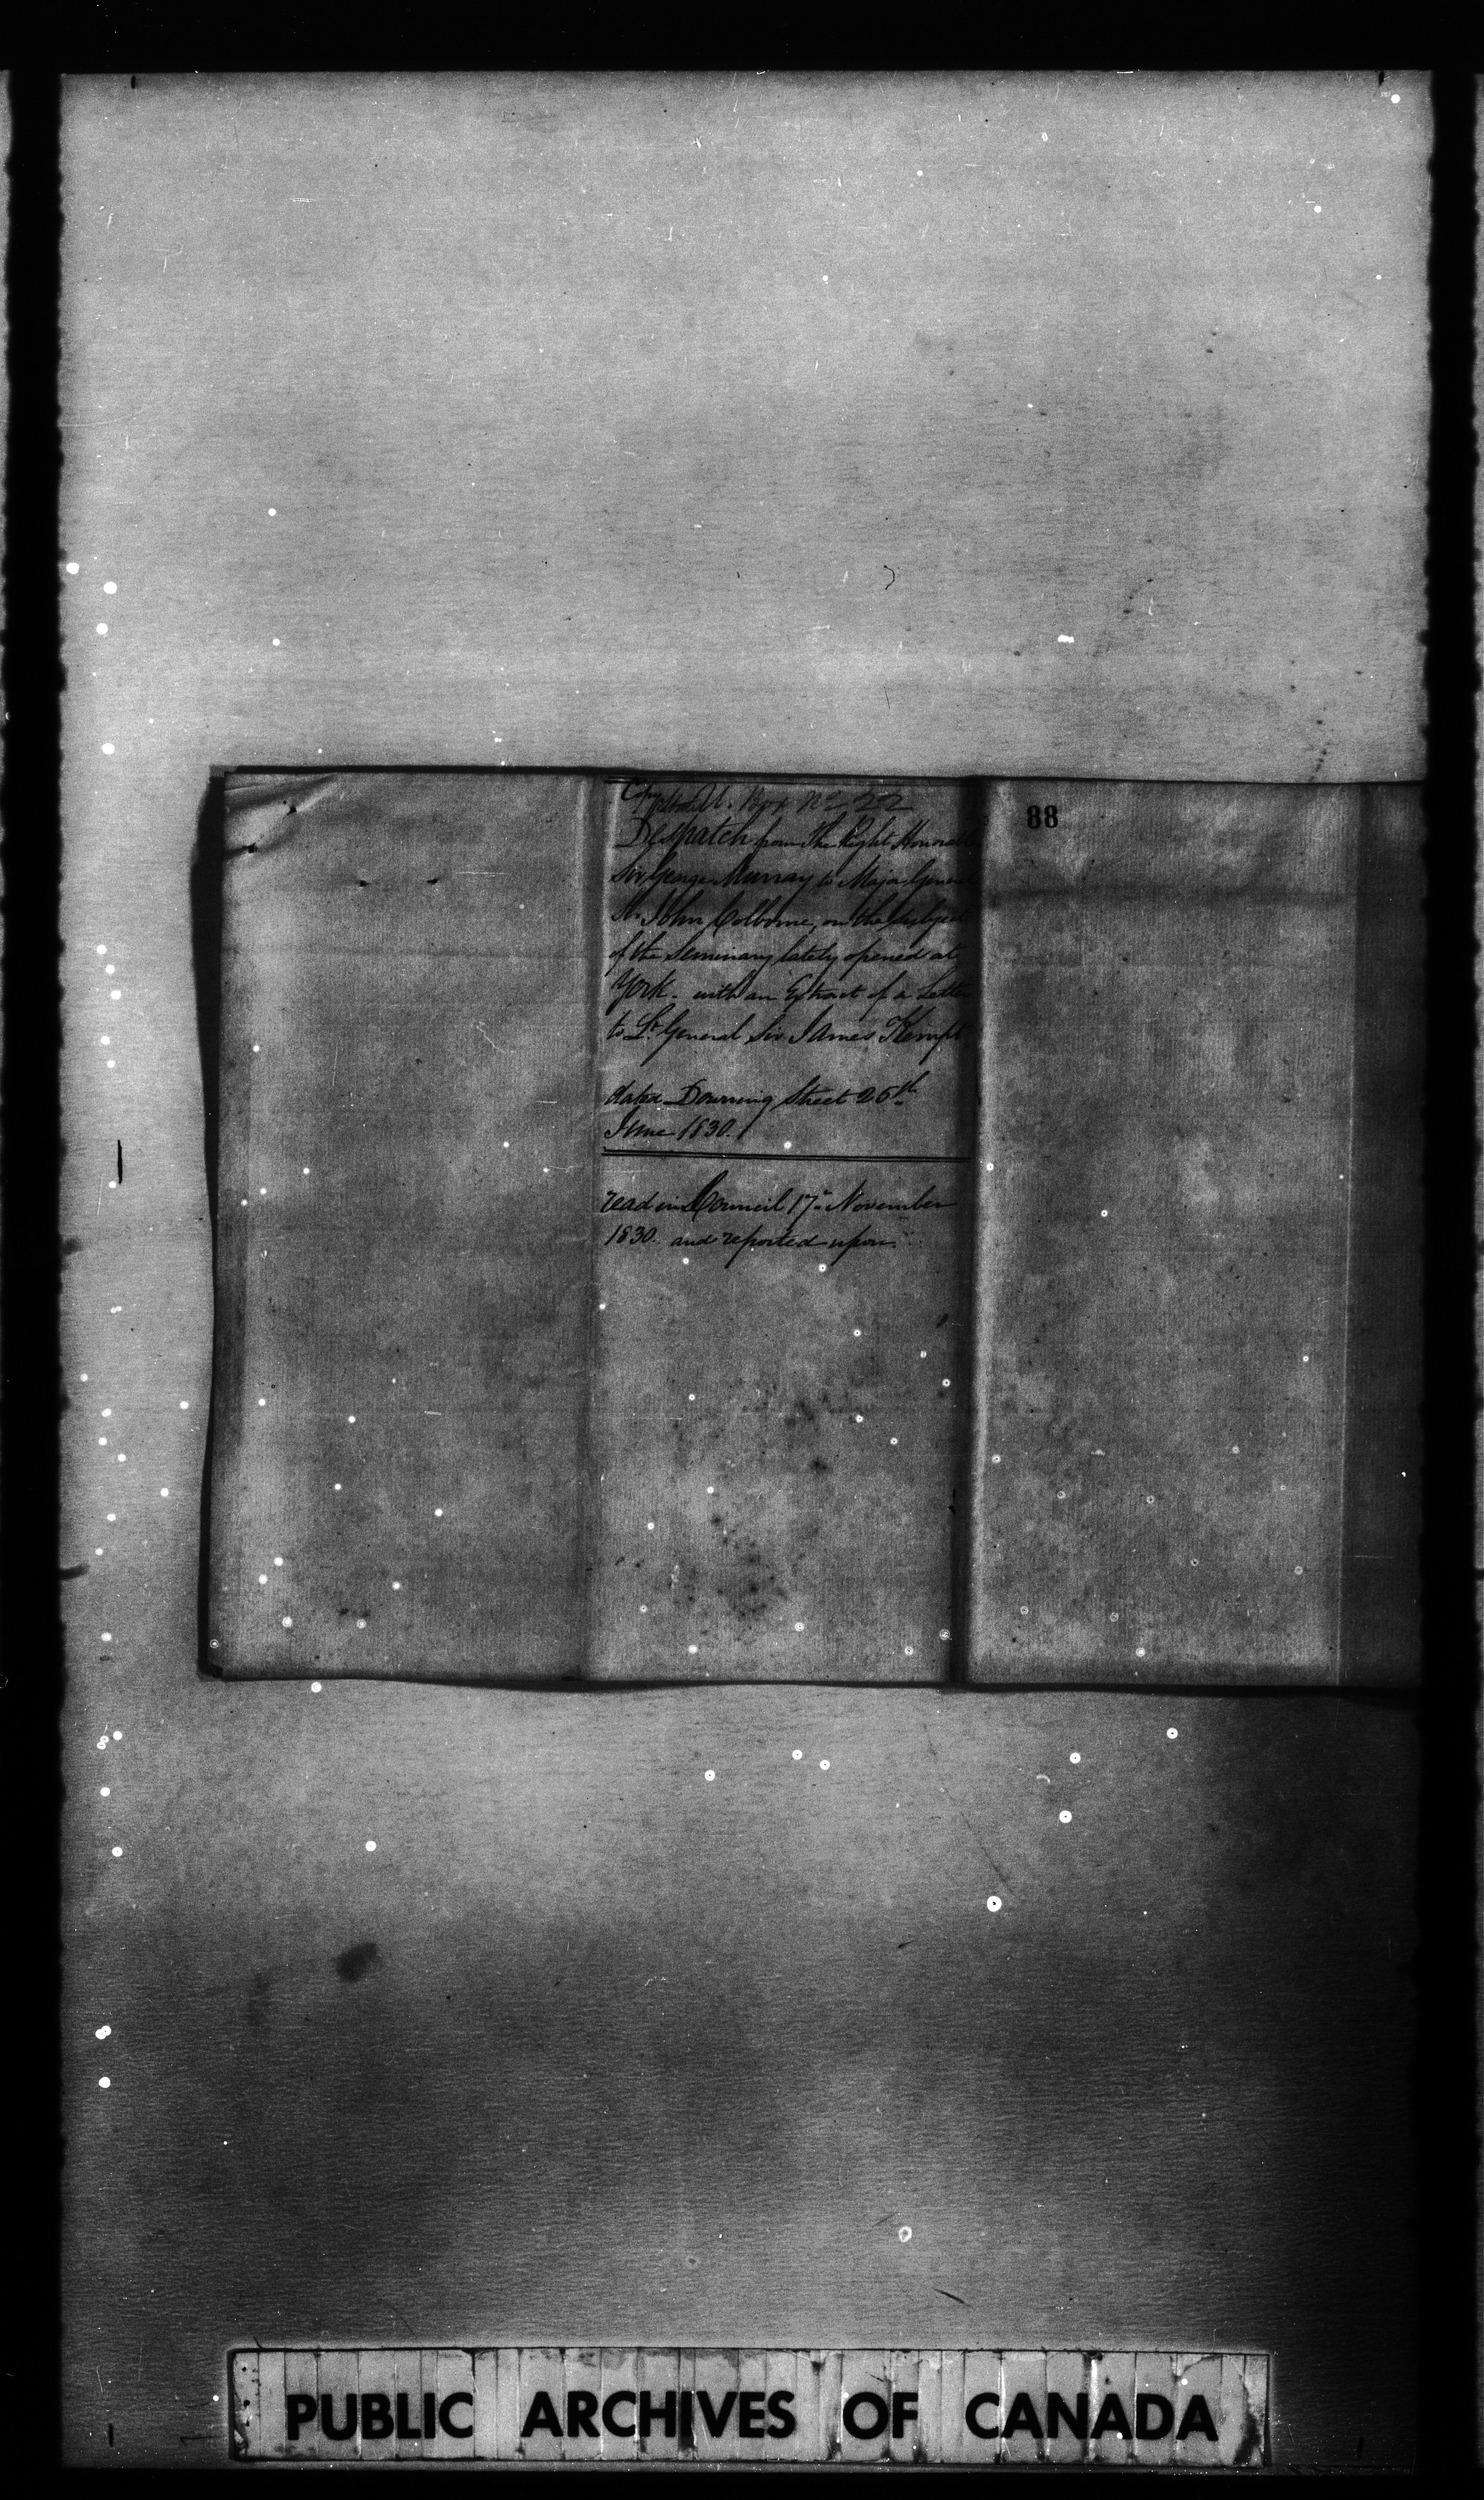 Copy
Box No 22
Despatch from The Right Honorable
Sir George Murray to Major General
Sir John Colborne, on the subject
of the Seminary lately opened at
York. with an Extract of a Letter
to Lt. General Sir James Kempt
dated Downing Street 25th
June 1830.
read in Council 17th November
1830. and reported upon.
88
PUBLIC ARCHIVES OF CANADA